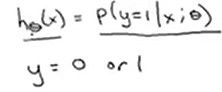 hθ(x) = P(y=1|x;θ)
y = 0 or 1